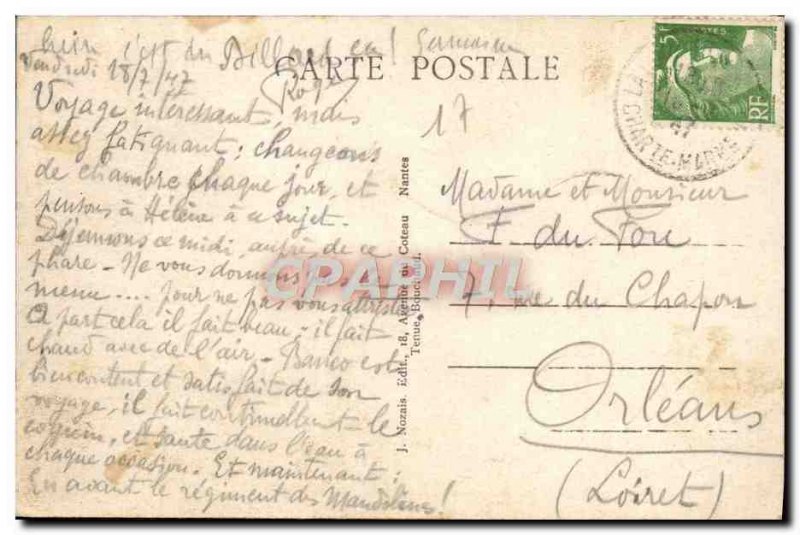 c'est du Billard en! Germaine
Vendredi 18/7/47
CARTE POSTALE
Roger
Voyage intéressant, mais
assez fatiguant; changeons
de chambre chaque jour, et
pensons à Hélène à ce sujet.
Déjeunons ce midi, auprès de ce
phare - Ne vous donnons pas le
menu .... pour ne pas vous attrister
A part cela il fait beau - il fait
chaud avec de l'air - Banco est
bien content et satisfait de son
voyage, il fait continuellement le
et saute dans l'eau à
chaque occasion. Et maintenant:
En avant le régiment des Mandolines!
17
Madame et Monsieur
F. du Fou
7, rue du Chapon
Orléans
(Loiret)
J. Nozais. Édit., 18, Avenue du Coteau Nantes
5F
POSTES
RF
47
CARPHIL